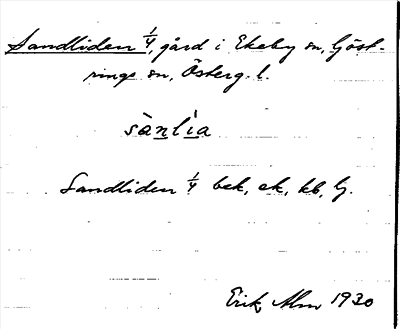 Sandliden 1/4, gård i Ekeby sn, Göst-
rings sn, Österg. l.
sànlìa
Sandliden 1/4 bek, ek, kb, G.
Erik Alm 1930